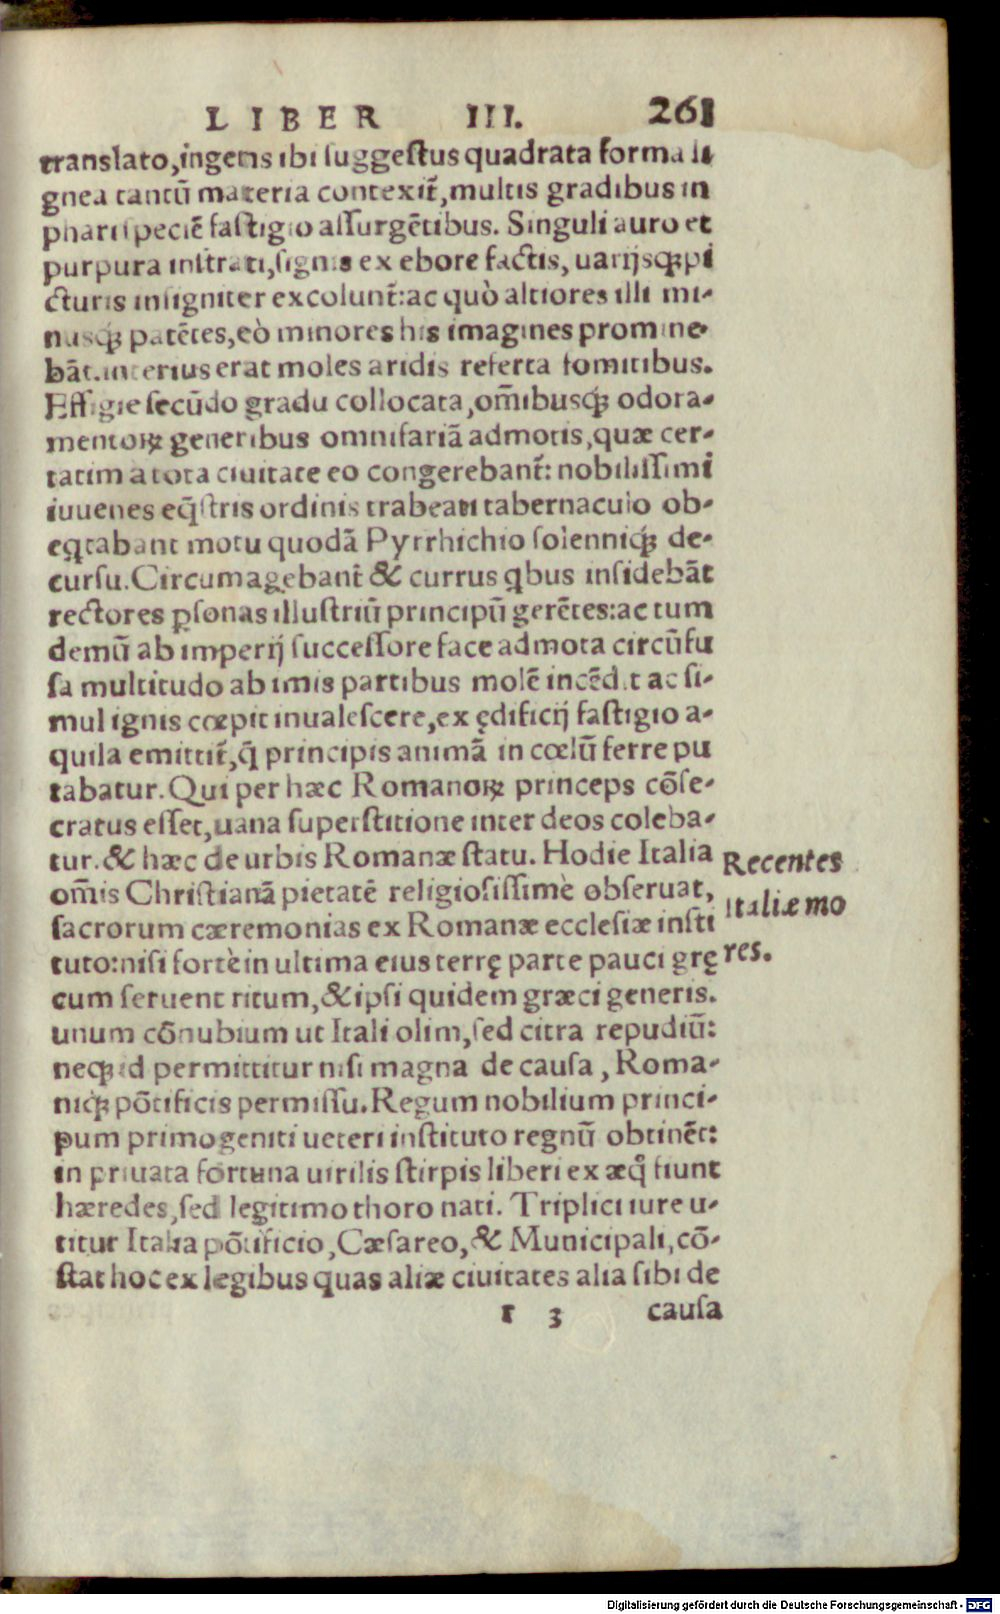 LIBER III. 261
translato, ingens ibi suggestus quadrata forma li
gnea tantũ materia contexit᷑, multis gradibus in
pharispeciẽ fastigio assurgẽtibus. Singuli auro et
purpura instrati, signis ex ebore factis, uarijsq́ʒ pi
cturis insigniter excolunt᷑: ac quò altiores illi mi-
nusq́ʒ patẽtes, eò minores his imagines promine-
bãt. interius erat moles aridis referta fomitibus.
Effigie secũdo gradu collocata, om̃ibusq́ʒ odora-
mentoꝝ generibus omnifariã admotis, quæ cer-
tatim a tota ciuitate eo congerebant᷑: nobilissimi
iuuenes eq̃stris ordinis trabeati tabernaculo ob-
eqtabant motu quodã Pyrrhichio solenniq́ʒ de-
cursu. Circumagebant᷑ & currus qbus insidebãt
rectores ꝑsonas illustriũ principũ gerẽtes: ac tum
demũ ab imperij successore face admota circũfu
sa multitudo ab imis partibus molẽ incẽdit ac si-
mul ignis cœpit inualescere, ex ędificij fastigio a-
quila emittit᷑, q̃ principis animã in cœlũ ferre pu
tabatur. Qui per hæc Romanoꝝ princeps cõse-
cratus esset, uana superstitione inter deos coleba-
tur. & hæc de urbis Romanæ statu. Hodie Italia
om̃is Christianã pietatẽ religiosissimè obseruat,
sacrorum cæremonias ex Romanæ ecclesiæ insti
tuto: nisi fortè in ultima eius terrę parte pauci grę
cum seruent ritum, & ipsi quidem græci generis.
unum cõnubium ut Itali olim, sed citra repudiũ:
neq́ʒ id permittitur nisi magna de causa, Roma-
niq́ʒ põtificis permissu. Regum nobilium princi-
pum primogeniti ueteri instituto regnũ obtinẽt:
in priuata fortuna uirilis stirpis liberi ex æqͦ fiunt
hæredes, sed legitimo thoro nati. Triplici iure u-
titur Italia põtificio, Cæsareo, & Municipali, cõ-
stat hoc ex legibus quas aliæ ciuitates alia sibi de
r 3 causa
Recentes
Italiæ mo
res.
Digitalisierung gefördert durch die Deutsche Forschungsgemeinschaft - DFG